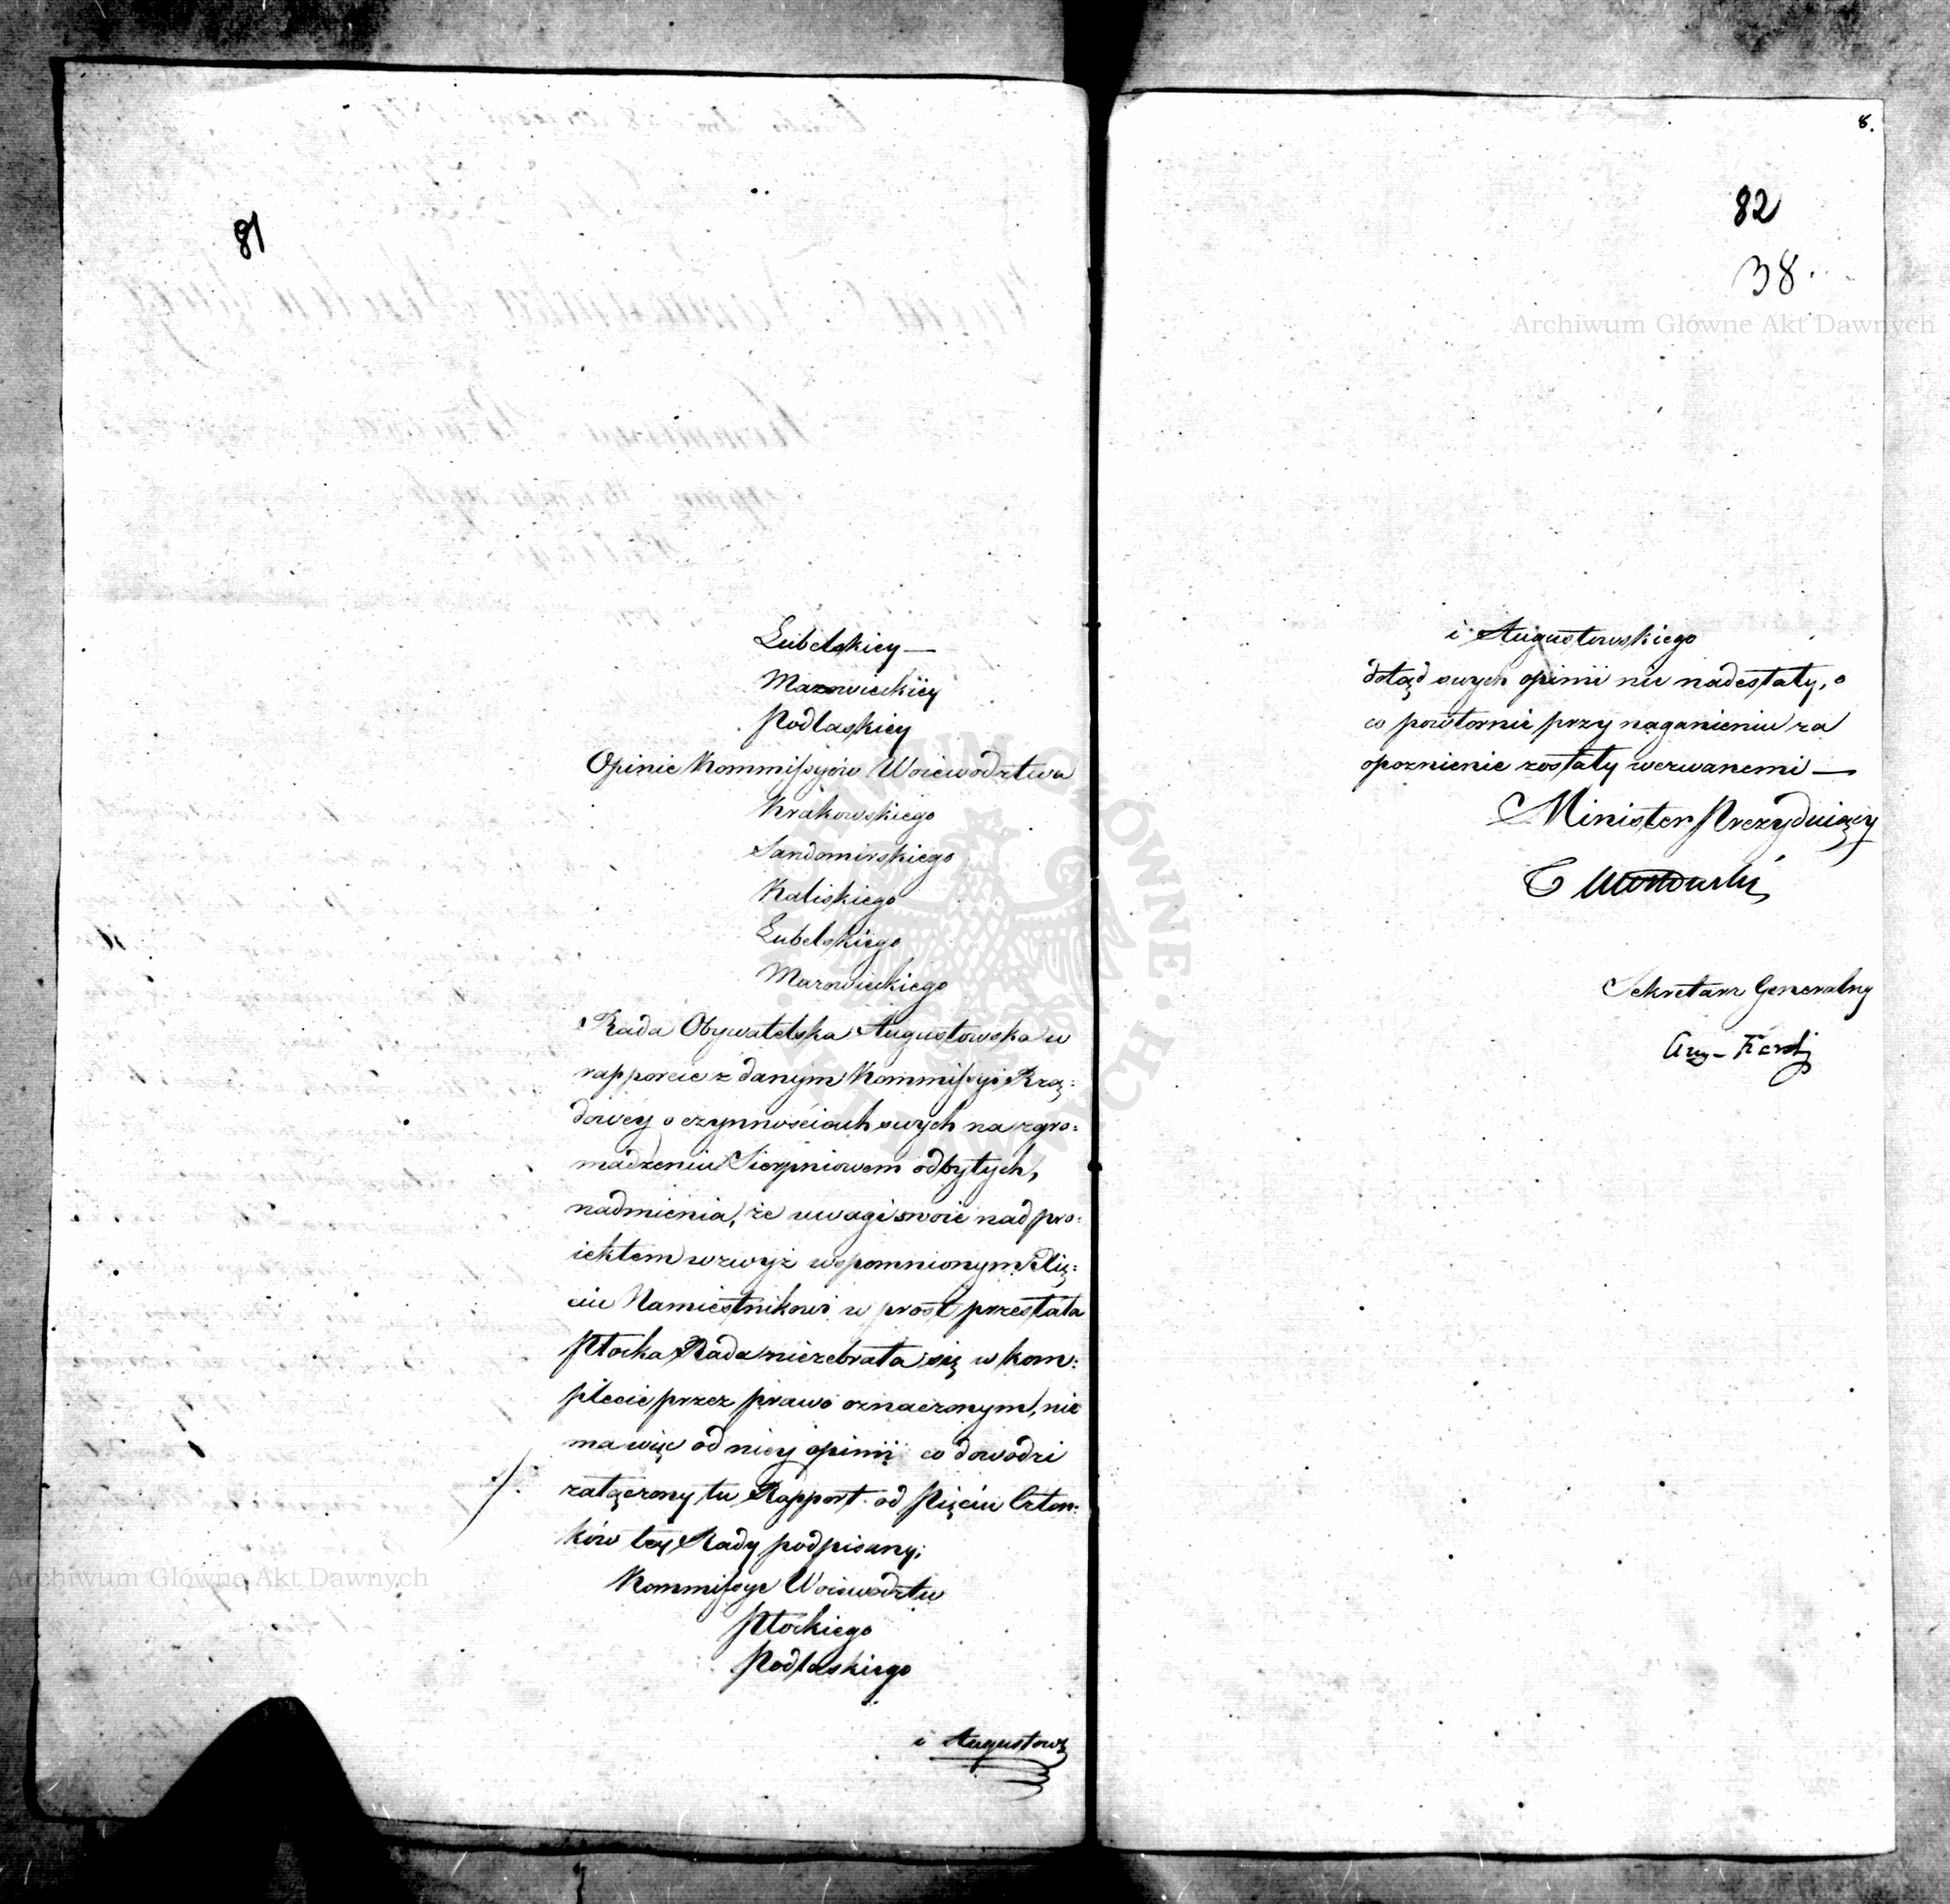 81
Lubelskiey —
Mazowieckiey
Podlaskiey
Opinie Kommissyów Woiewodztwa
Krakowskiego
Sandomirskiego
Kaliskiego
Lubelskiego
Mazowieckiego
Rada Obywatelska Augustowska w
rapporcie zdanym Kommissyi Rzą:
dowey o czynnościach swych na zgro:
madzeniu Sierpniowem odbytych,
nadmienia, że uwagi swoie nad pro:
iektem wzwyż wspomnionym Xię:
ciu Namiestnikowi w prost przesłała
Płocka Rada niezebrała się w kom:
plecie przez prawo oznaczonym, nie
ma więc od niey opinii co dowodzi
załączony tu Rapport od Pięciu Człon:
ków tey Rady podpisany.
Kommissye Woiewodztw
Płockiego
Podlaskiego
i Augustows
Archiwum Główne Akt Dawnych
8.
82
38.
Archiwum Główne Akt Dawnych
i Augustowskiego
dotąd swych opinii nie nadesłały, o
co powtornie przy naganieniu za
opoznienie zostały wezwanemi —
Minister Prezyduiący
T Mostowski
Sekretarz Generalny
Aug. Karski